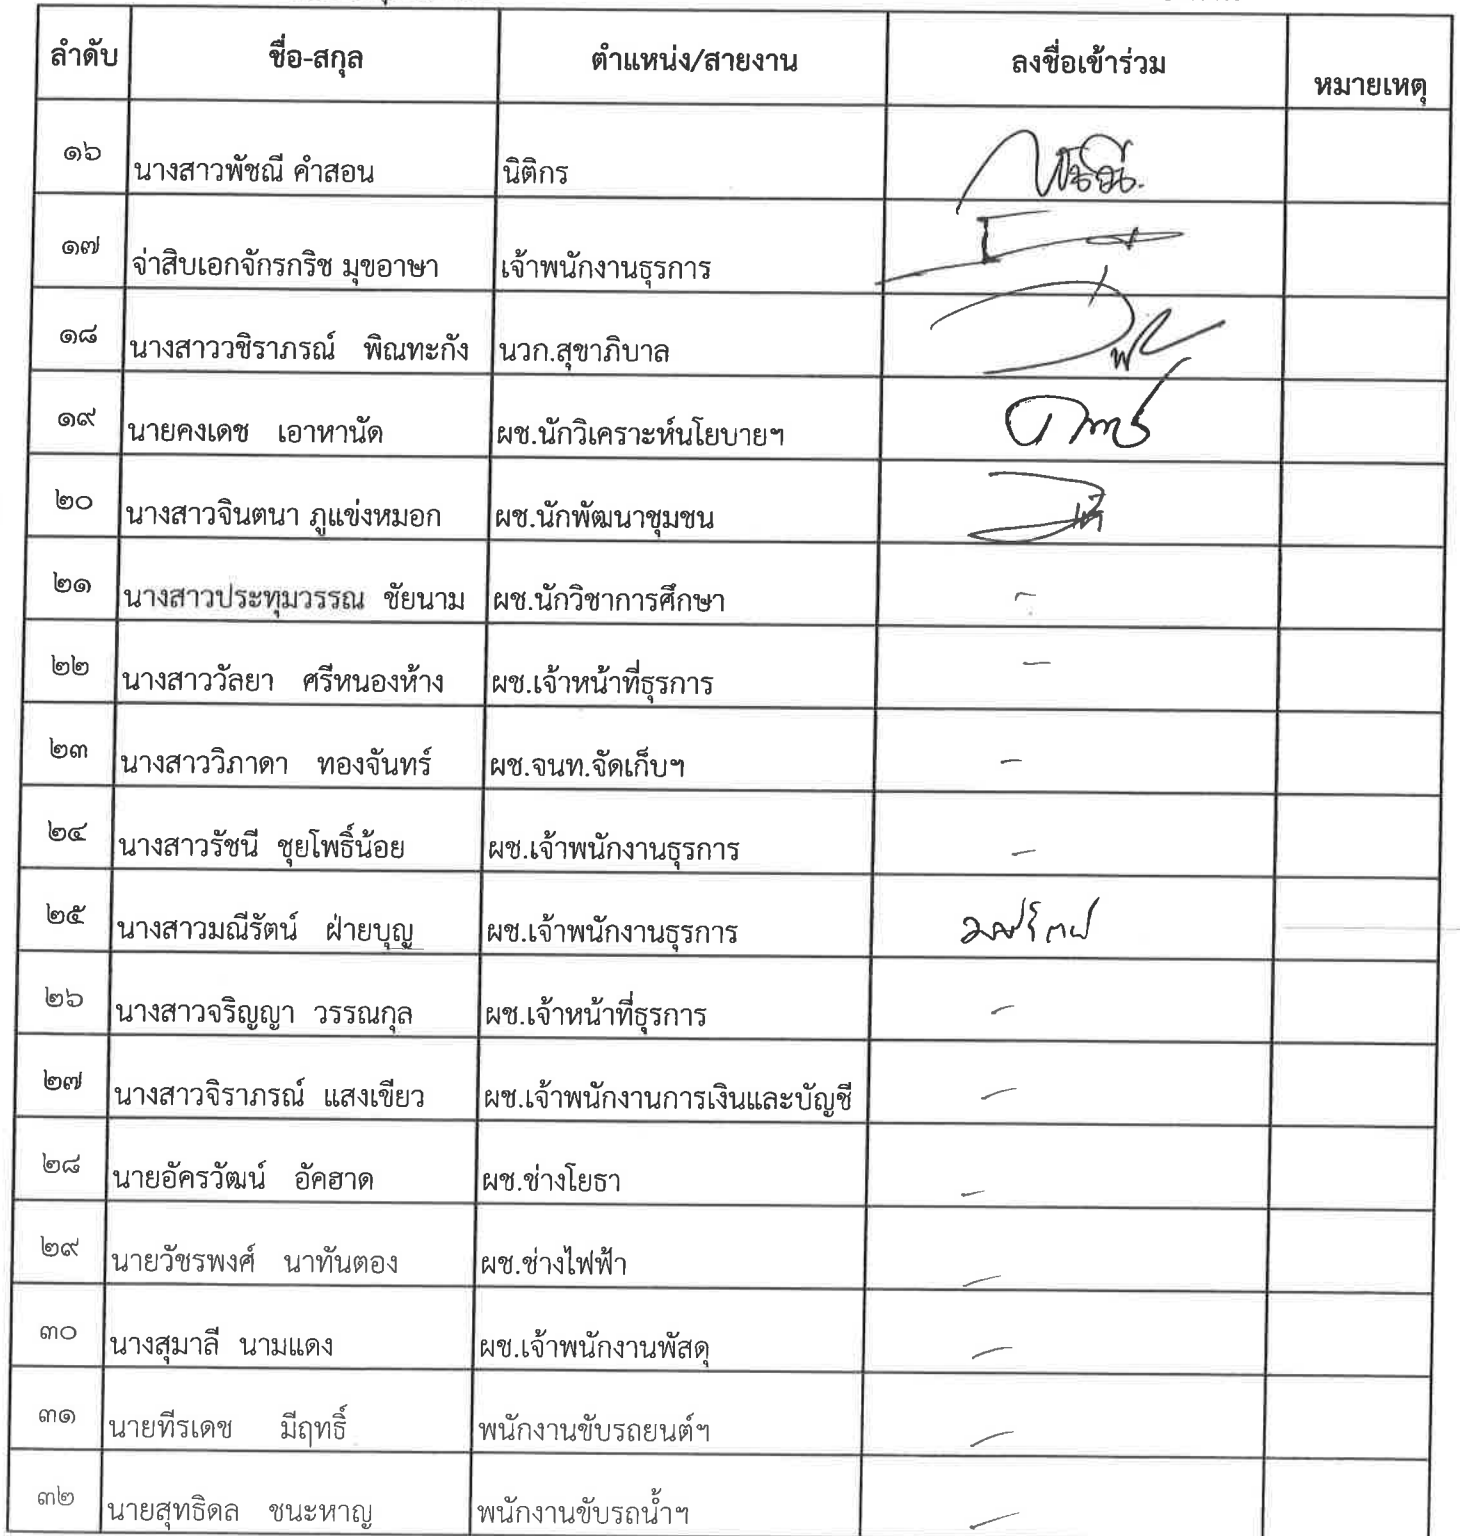 ลำดับ ชื่อ-สกุล ตำแหน่ง/สายงาน ลงชื่อเข้าร่วม หมายเหตุ
๑๖ นางสาวพัชณี คำสอน นิติกร
๑๗ จ่าสิบเอกจักรกริช มุขอาษา เจ้าพนักงานธุรการ
๑๘ นางสาววชิราภรณ์ พิณทะกัง นวก.สุขาภิบาล
๑๙ นายคงเดช เอาหานัด ผช.นักวิเคราะห์นโยบายฯ
๒๐ นางสาวจินตนา ภูแข่งหมอก ผช.นักพัฒนาชุมชน
๒๑ นางสาวประทุมวรรณ ชัยนาม ผช.นักวิชาการศึกษา -
๒๒ นางสาววัลยา ศรีหนองห้าง ผช.เจ้าหน้าที่ธุรการ -
๒๓ นางสาววิภาดา ทองจันทร์ ผช.จนท.จัดเก็บฯ -
๒๔ นางสาวรัชนี ชุยโพธิ์น้อย ผช.เจ้าพนักงานธุรการ -
๒๕ นางสาวมณีรัตน์ ฝ่ายบุญ ผช.เจ้าพนักงานธุรการ
๒๖ นางสาวจริญญา วรรณกุล ผช.เจ้าหน้าที่ธุรการ -
๒๗ นางสาวจิราภรณ์ แสงเขียว ผช.เจ้าพนักงานการเงินและบัญชี -
๒๘ นายอัครวัฒน์ อัคฮาด ผช.ช่างโยธา -
๒๙ นายวัชรพงศ์ นาทันตอง ผช.ช่างไฟฟ้า -
๓๐ นางสุมาลี นามแดง ผช.เจ้าพนักงานพัสดุ -
๓๑ นายทีรเดช มีฤทธิ์ พนักงานขับรถยนต์ฯ -
๓๒ นายสุทธิดล ชนะหาญ พนักงานขับรถน้ำฯ -